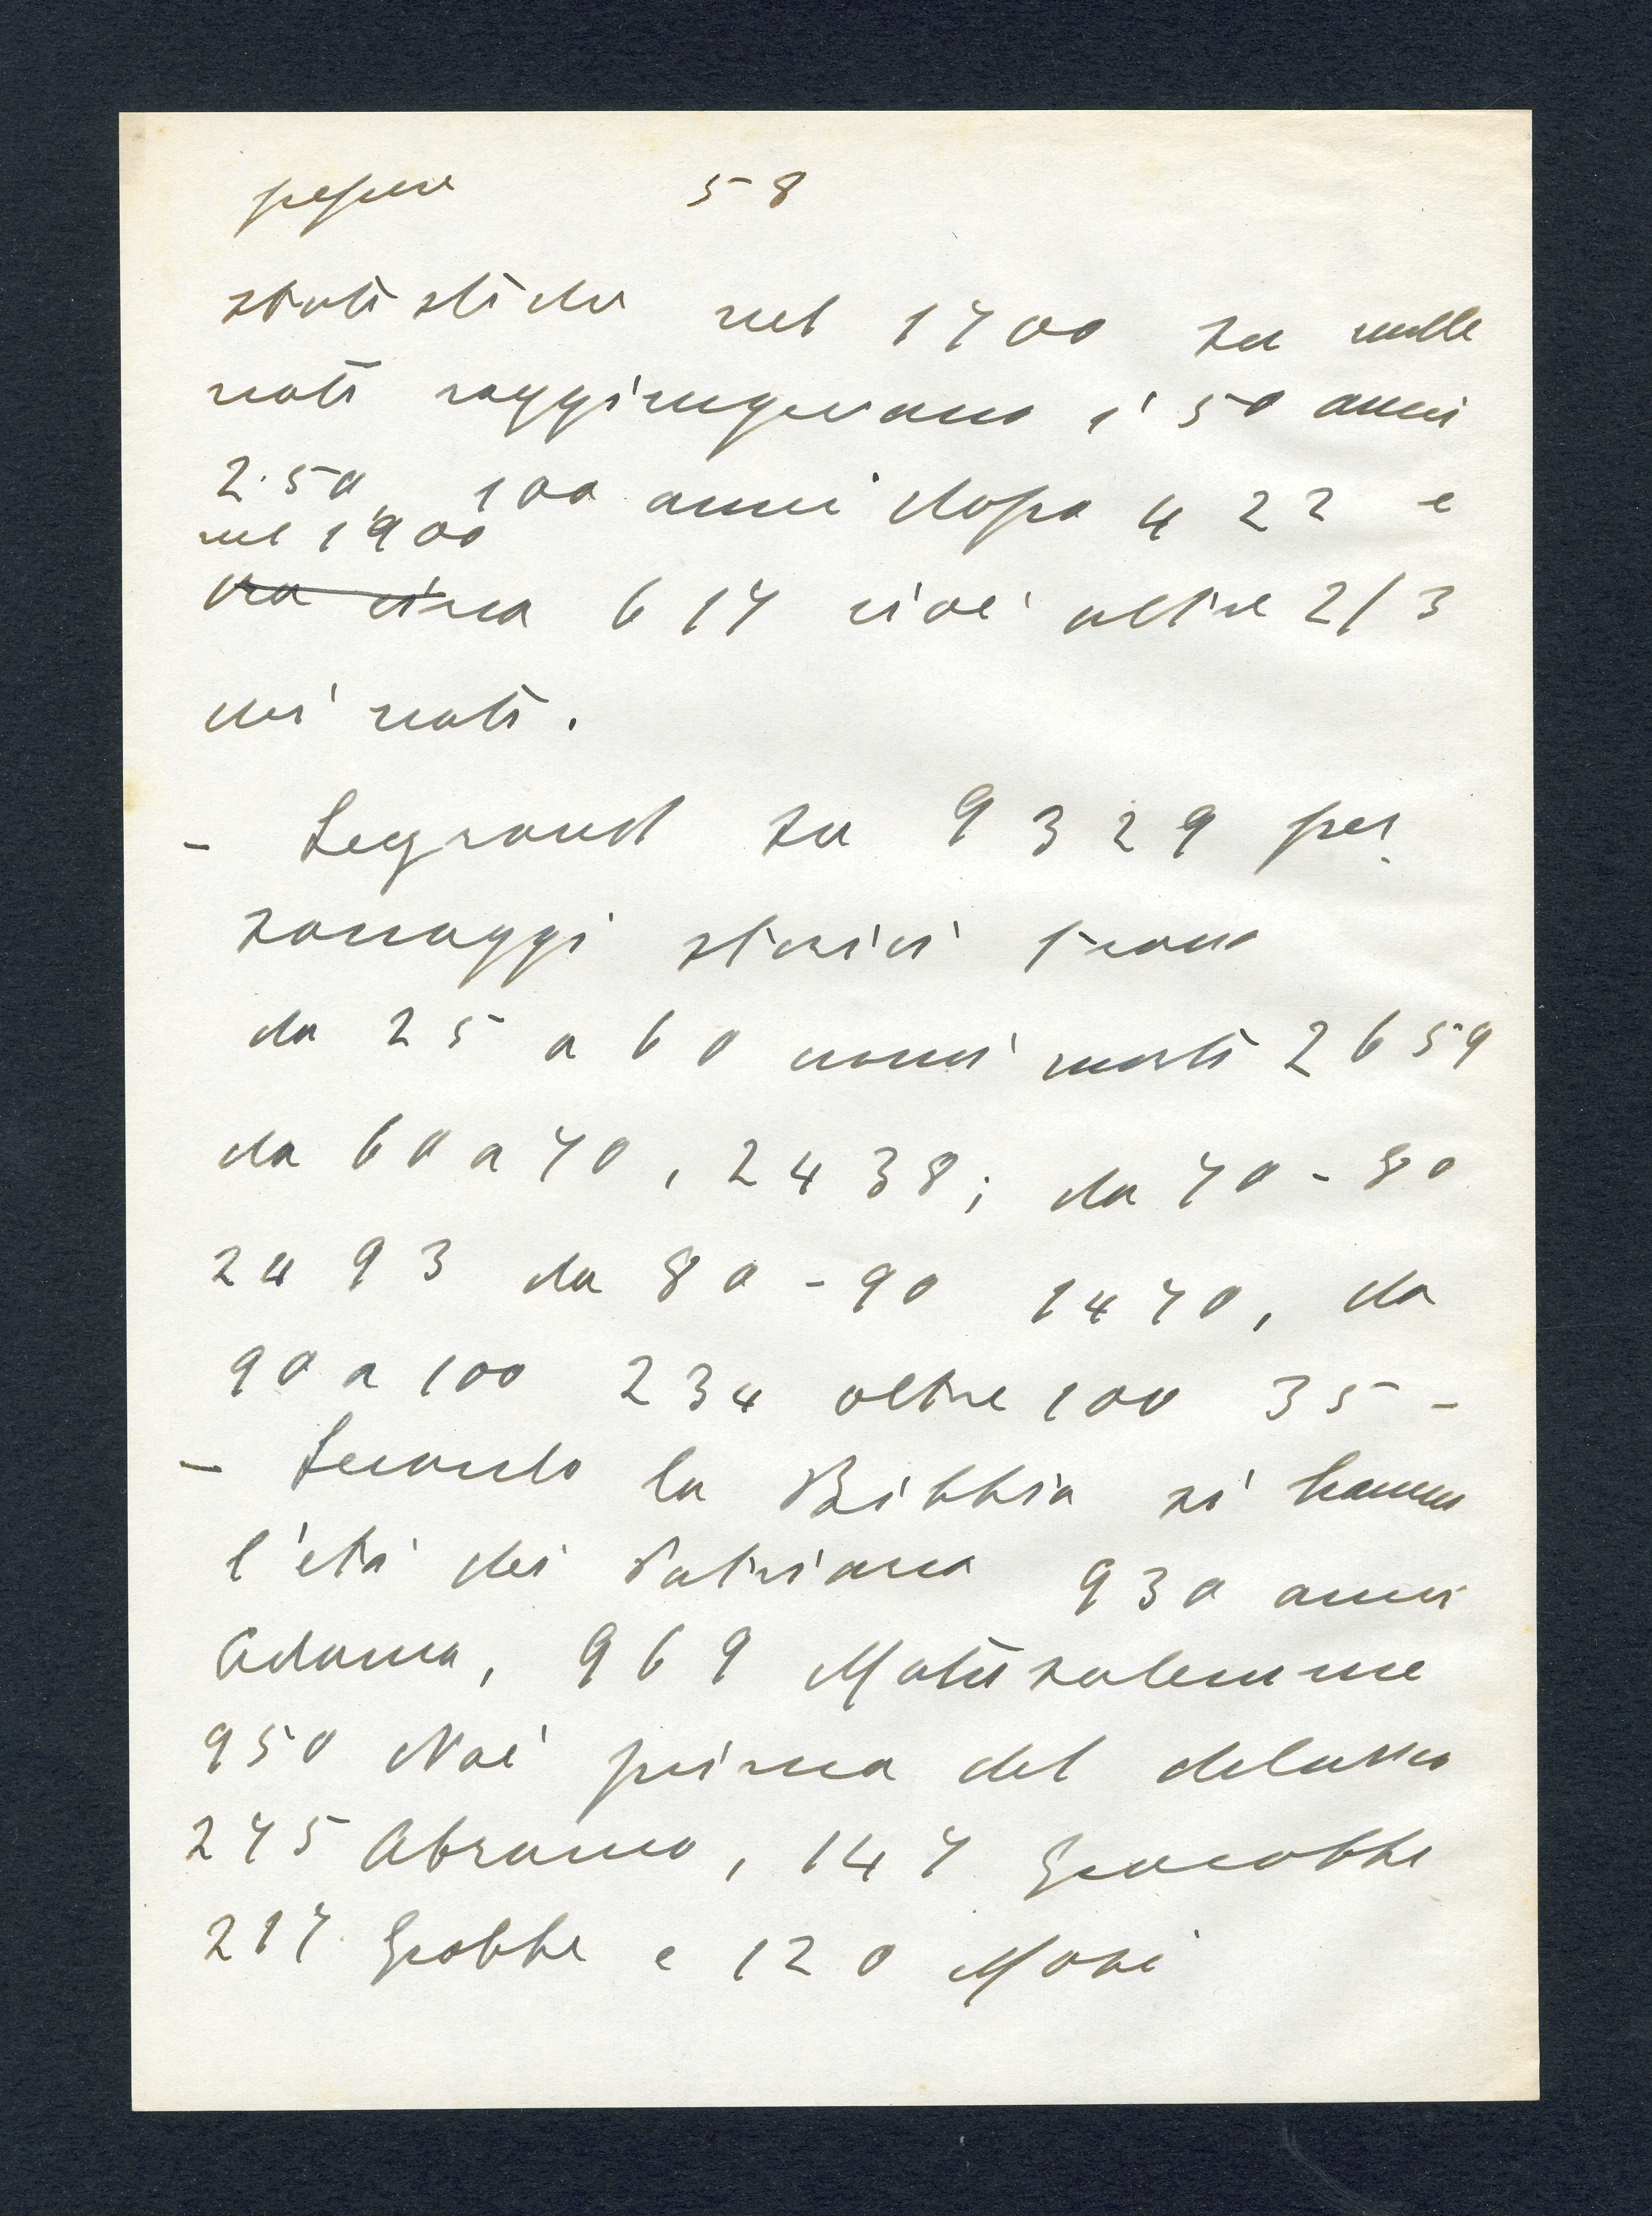 58
statistiche nel 1700 su mille
nati raggiungevano i 50 anni
250, 100 anni dopo 422 e
nel 1900
ora circa 617 cioè oltre 2/3
dei nati.
- Legrand su 9329 per
sonaggi storici trova
da 25 a 60 anni morti 2659
da 60 a 70, 2438; da 70-80
2493 da 80-90 1470, da
90 a 100 234 oltre 100 35-
- Secondo la Bibbia si hanno
l'età dei Patriarca 930 anni
Adamo, 969 Matusalemme
950 Noè prima del deluvio
275 Abramo, 147 Giacobbe
217 Giobbe e 120 Mosè